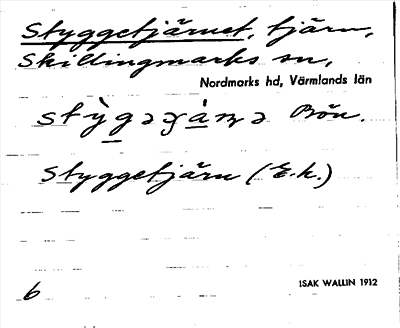 Styggetjärnet, tjärn,
Skillingmarks sn,
Nordmarks hd, Värmlands län
Bön.
Styggetjärn (E.k.)
ISAK WALLIN 1912
6